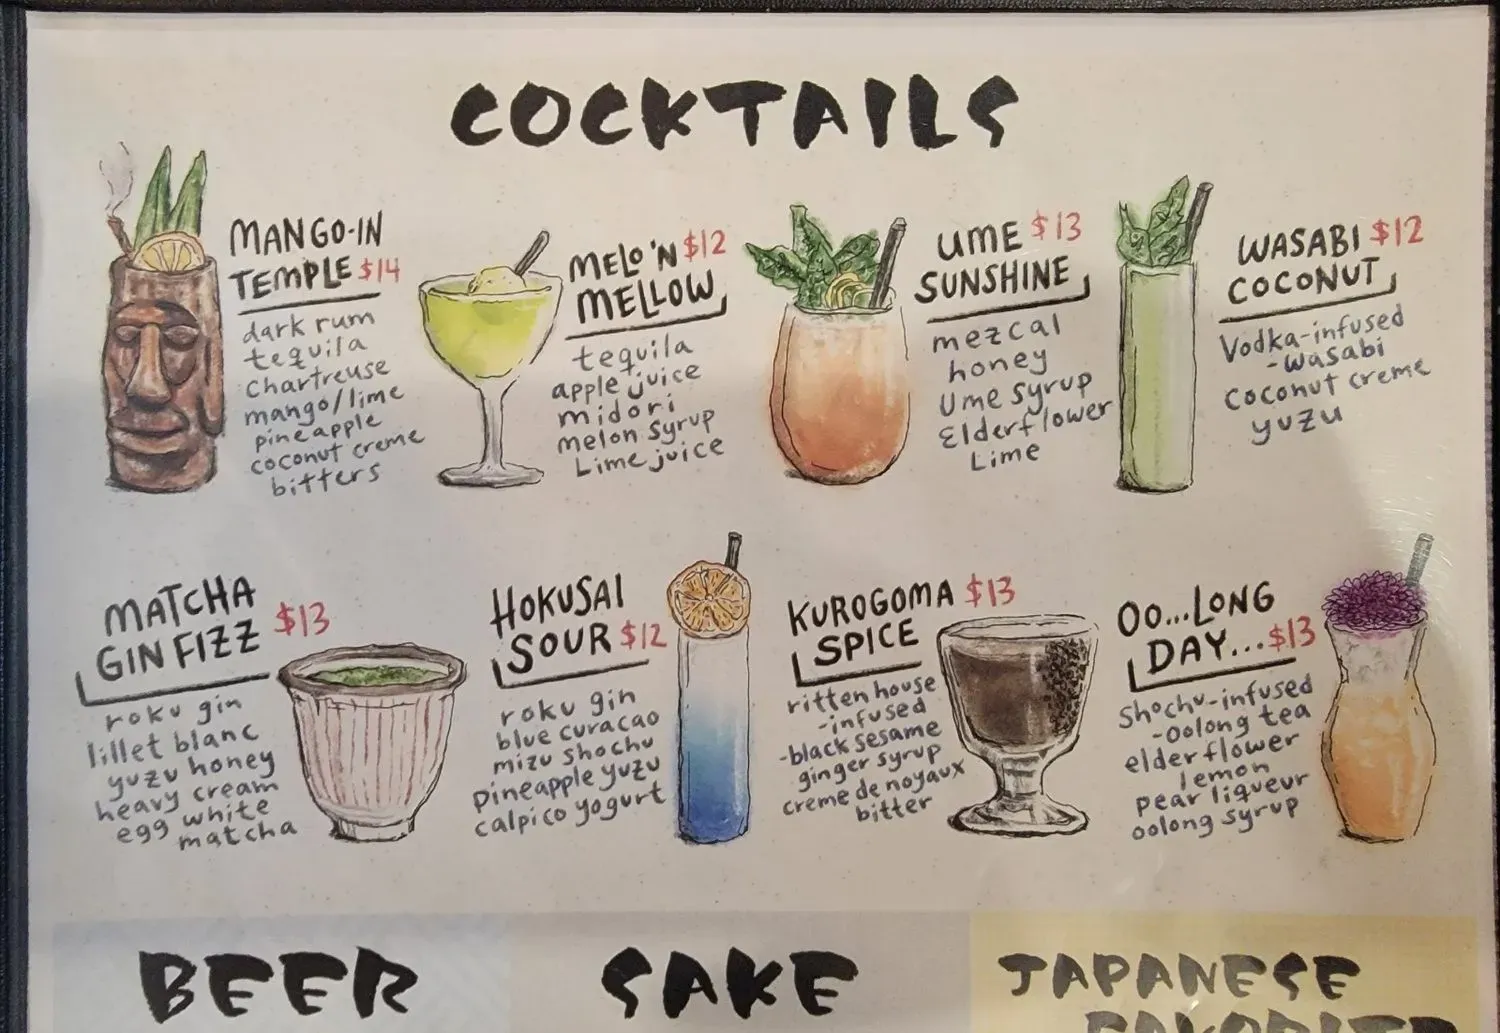 COCKTAILS
MANGO-IN
TEMPLE $14
dark rum
tequila
chartreuse
mango/lime
pineapple
coconut creme
bitters
MELO 'N $12
MELLOW
tequila
apple juice
midori
melon syrup
Lime juice
UME $13
SUNSHINE
mezcal
honey
Ume syrup
Elderflower
Lime
WASABI $12
COCONUT
Vodka-infused
-wasabi
Coconut creme
yuzu
MATCHA
GIN FIZZ $13
roku gin
lillet blanc
yuzu honey
heavy cream
egg white
matcha
HOKUSAI
SOUR $12
roku gin
blue curacao
mizu shochu
pineapple yuzu
calpico yogurt
KUROGOMA $13
SPICE
ritten house
-infused
-black sesame
ginger syrup
creme de noyaux
bitter
OO...LONG
DAY... $13
Shochu-infused
-oolong tea
elderflower
lemon
pear liqueur
oolong syrup
BEER
SAKE
JAPANESE
FAVORITE